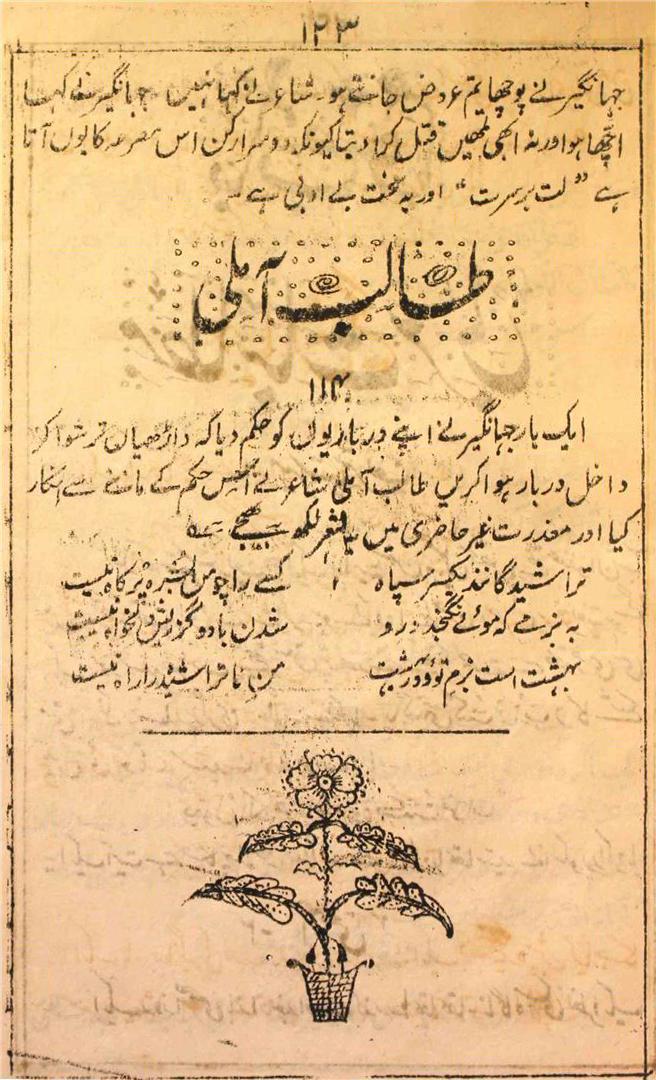 ۱۲۳
جہانگیر نے پوچھا تم عروض جانتے ہو۔ شاعر نے کہا نہیں جہانگیر نے کہا
اچھا ہوا ورنہ ابھی تمھیں قتل کرا دیتا کیونکہ دوسرا رکن اس مصرعہ کا یوں آتا
ہے “لت بر سرت“ اور یہ سخت بے ادبی ہے۔
طالب آملی
۱۱۴
ایک بار جہانگیر نے اپنے درباریوں کو حکم دیا کہ داڑھیاں ترشوا کر
داخل دربار ہوا کریں طالب آملی شاعر نے اس حکم کے ماننے سے انکار
کیا اور معذرت غیر حاضری میں یہ شعر لکھ بھیجے
تراشیدگانند یکسر سپاہ کسے را چو من پر کاہ نیست
بہ بزمے کہ موئے نگنجد درو شدن با دو گز ریش دلخواہ نیست
بہشت است بزم تو و در بہشت من ناتراشیدہ را راہ نیست